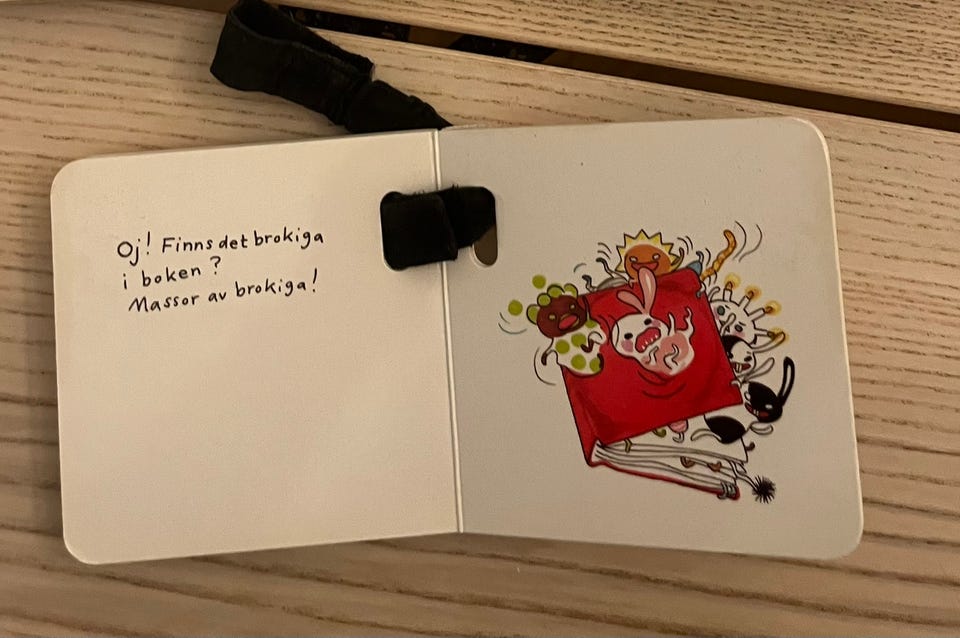 Oj! Finns det brokiga
i boken?
Massor av brokiga!